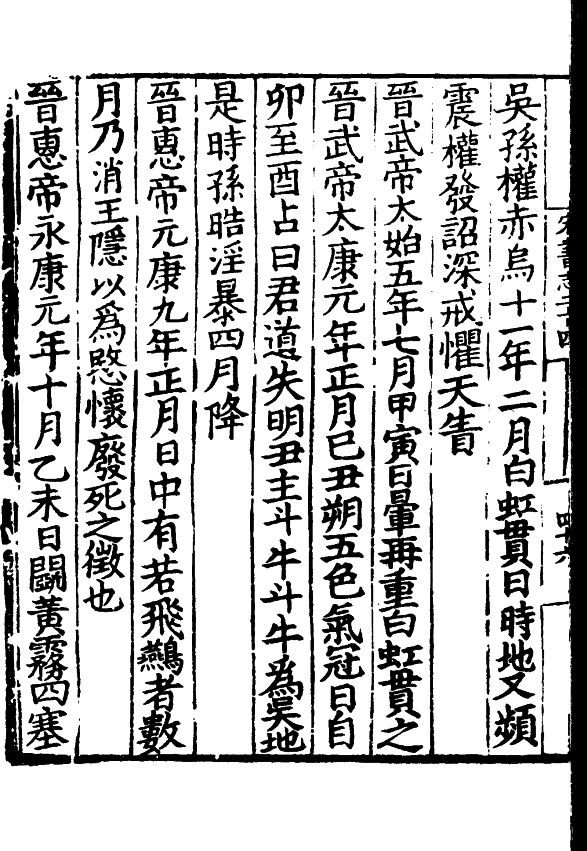 吳孫權赤烏十一年二月白虹貫日時地又頻
震權發詔深戒懼天眚
晉武帝太始五年七月甲寅日暈再重白虹貫之
晉武帝太康元年正月己丑朔五色氣冠日自
卯至酉占曰君道失明丑主斗牛斗牛爲吳地
是時孫晧淫暴四月降
晉惠帝元康九年正月日中有若飛鷰者數
月乃消王隱以爲愍懷廢死之徵也
晉惠帝永康元年十月乙未日闘黃霧四塞